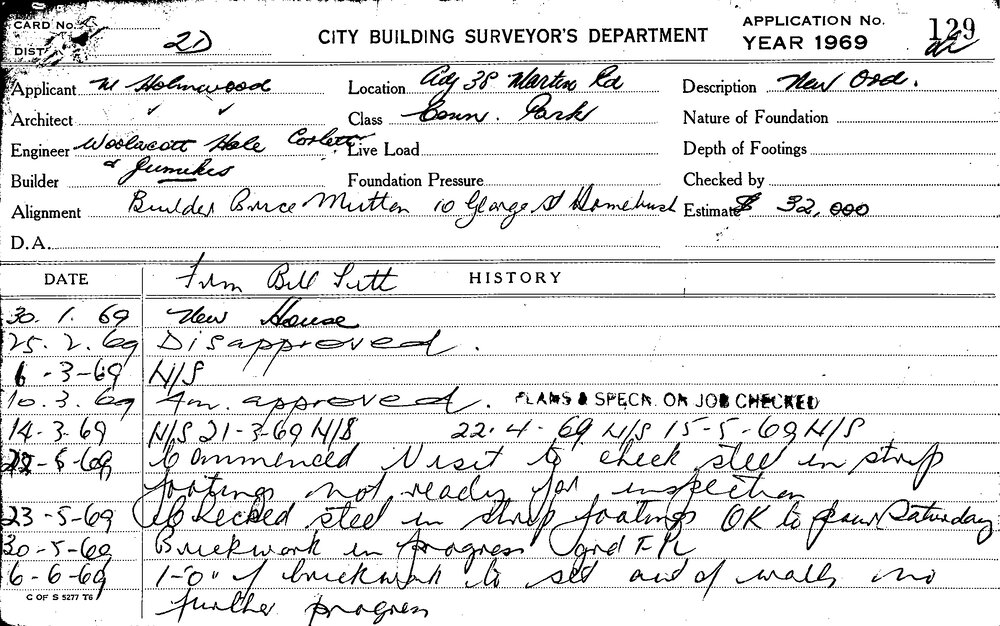 CARD No.
DIST. 2D
CITY BUILDING SURVEYOR'S DEPARTMENT
APPLICATION No. 129
YEAR 1969
Applicant M Holmwood Location Adj 38 Martin Rd Description New Ord.
Architect ✓ ✓ Class Conn. Park Nature of Foundation
Engineer Woolacott Hale Corlett Live Load Depth of Footings
& Jumikis
Builder Foundation Pressure Checked by
Alignment Builder Bruce Mutton 10 George St Homebush Estimate $ 32,000
D.A.
DATE From Bill HISTORY
30. 1. 69 New House
25. 2. 69 Disapproved.
6 - 3-69 N/S
10. 3. 69 Am. approved. PLANS & SPECN. ON JOB CHECKED
14-3-69 N/S 21-3-69 N/S 22-4-69 N/S 15-5-69 N/S
22-5-69 Commenced Visit to check steel in strip
footings not ready for inspection
23-5-69 Checked steel in strip footings OK to pour Saturday
30-5-69 Brickwork in progress grd
6-6-69 1'-0" of brickwork to set out of walls no
further progress
C OF S 5277 T6